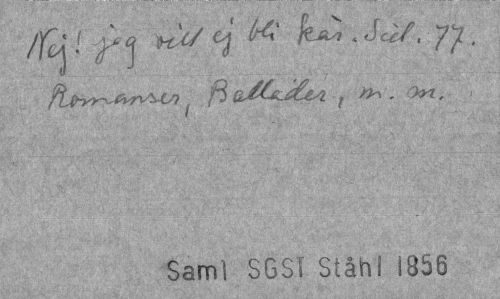 Nej! jag vill ej bli kär. Sid. 77.
Romanser, Ballader, m. m.
Saml SGST Ståhl 1856